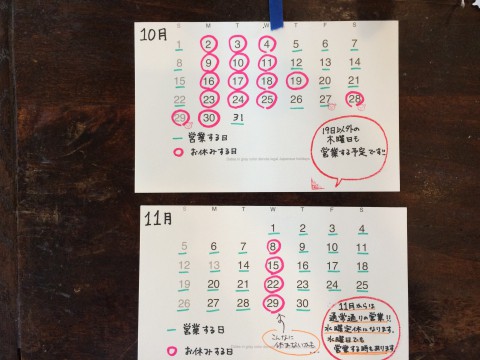 10月
S M T W T F S
1 2 3 4 5 6 7
8 9 10 11 12 13 14
15 16 17 18 19 20 21
22 23 24 25 26 27 28
29 30 31
営業する日
お休みする日
19日以外の
木曜日も
営業する予定です!!
11月
S M T W T F S
1 2 3 4
5 6 7 8 9 10 11
12 13 14 15 16 17 18
19 20 21 22 23 24 25
26 27 28 29 30
営業する日
お休みする日
こんなに
休まないかも
11月からは
通常通りの営業!!
水曜定休になります。
水曜日でも
営業する時もあります